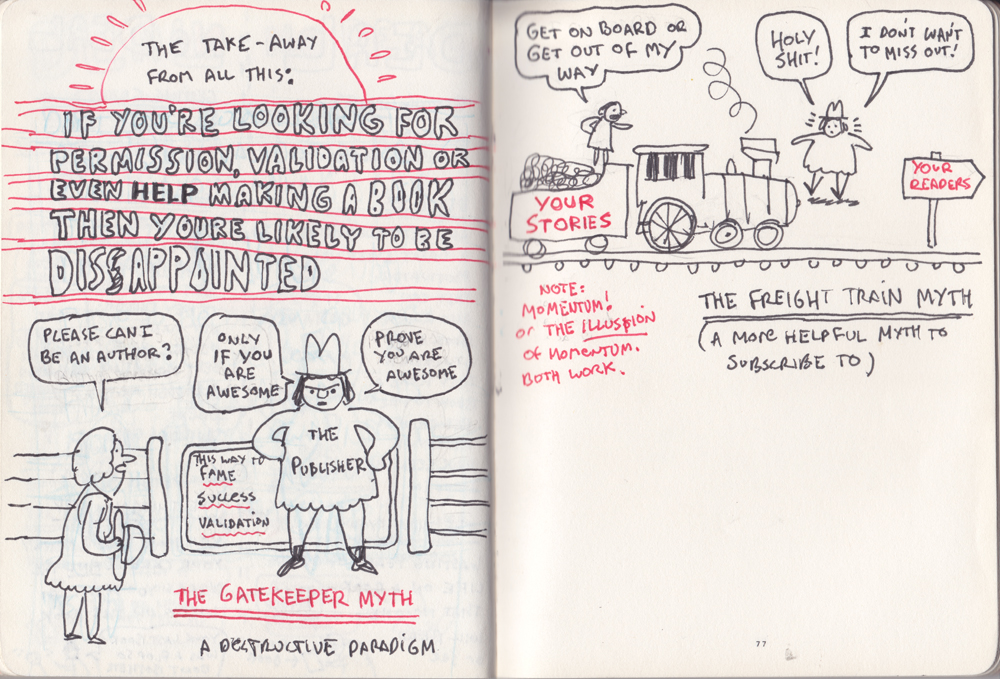 THE TAKE-AWAY
FROM ALL THIS:
IF YOU'RE LOOKING FOR
PERMISSION, VALIDATION OR
EVEN HELP MAKING A BOOK
THEN YOURE LIKELY TO BE
DISSAPPOINTED
PLEASE CAN I
BE AN AUTHOR?
ONLY
IF YOU
ARE
AWESOME
PROVE
YOU ARE
AWESOME
THE
PUBLISHER
THIS WAY TO
FAME
SUCCESS
VALIDATION
THE GATEKEEPER MYTH
A DESTRUCTIVE PARADIGM
GET ON BOARD OR
GET OUT OF MY
WAY
HOLY
SHIT!
I DON'T WANT
TO MISS OUT!
YOUR
STORIES
YOUR
READERS
NOTE:
MOMENTUM!
or THE ILLUSION
of MOMENTUM.
BOTH WORK.
THE FREIGHT TRAIN MYTH
(A MORE HELPFUL MYTH TO
SUBSCRIBE TO)
77